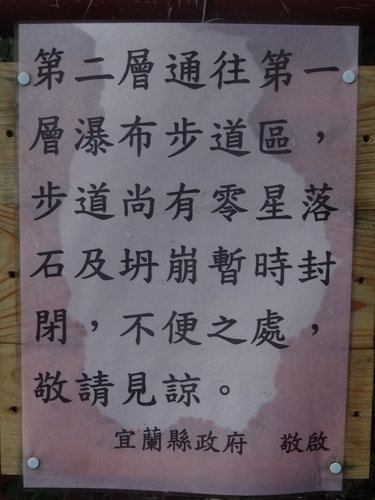 第二層通往第一
層瀑布步道區，
步道尚有零星落
石及坍崩暫時封
閉，不便之處，
敬請見諒。
宜蘭縣政府　敬啟